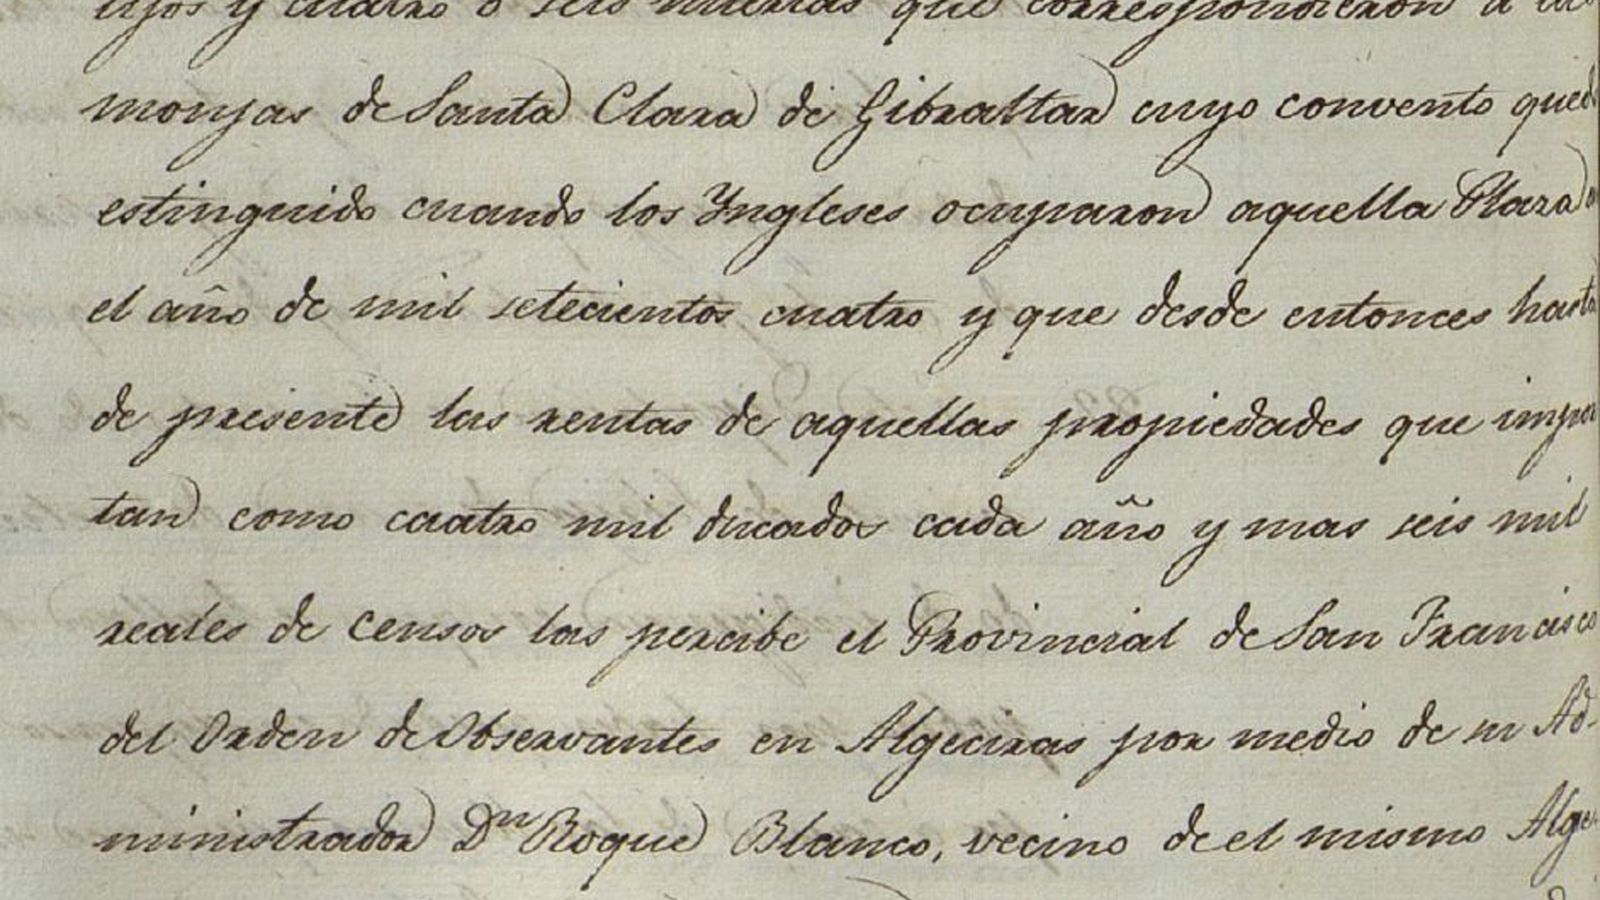 y cuatro o seis que correspondieron a las
monjas de Santa Clara de Gibraltar cuyo convento quedo
estinguido cuando los Yngleses ocuparon aquella Plaza
el año de mil setecientos cuatro y que desde entonces hasta
de presente las rentas de aquellas propiedades que impor
tan como cuatro mil ducados cada año y mas seis mil
reales de censos las percibe el Provincial de San Francisco
del Orden de Observantes en Algeciras por medio de su Ad-
ministrador Dn Roque Blanco, vecino de el mismo Alge